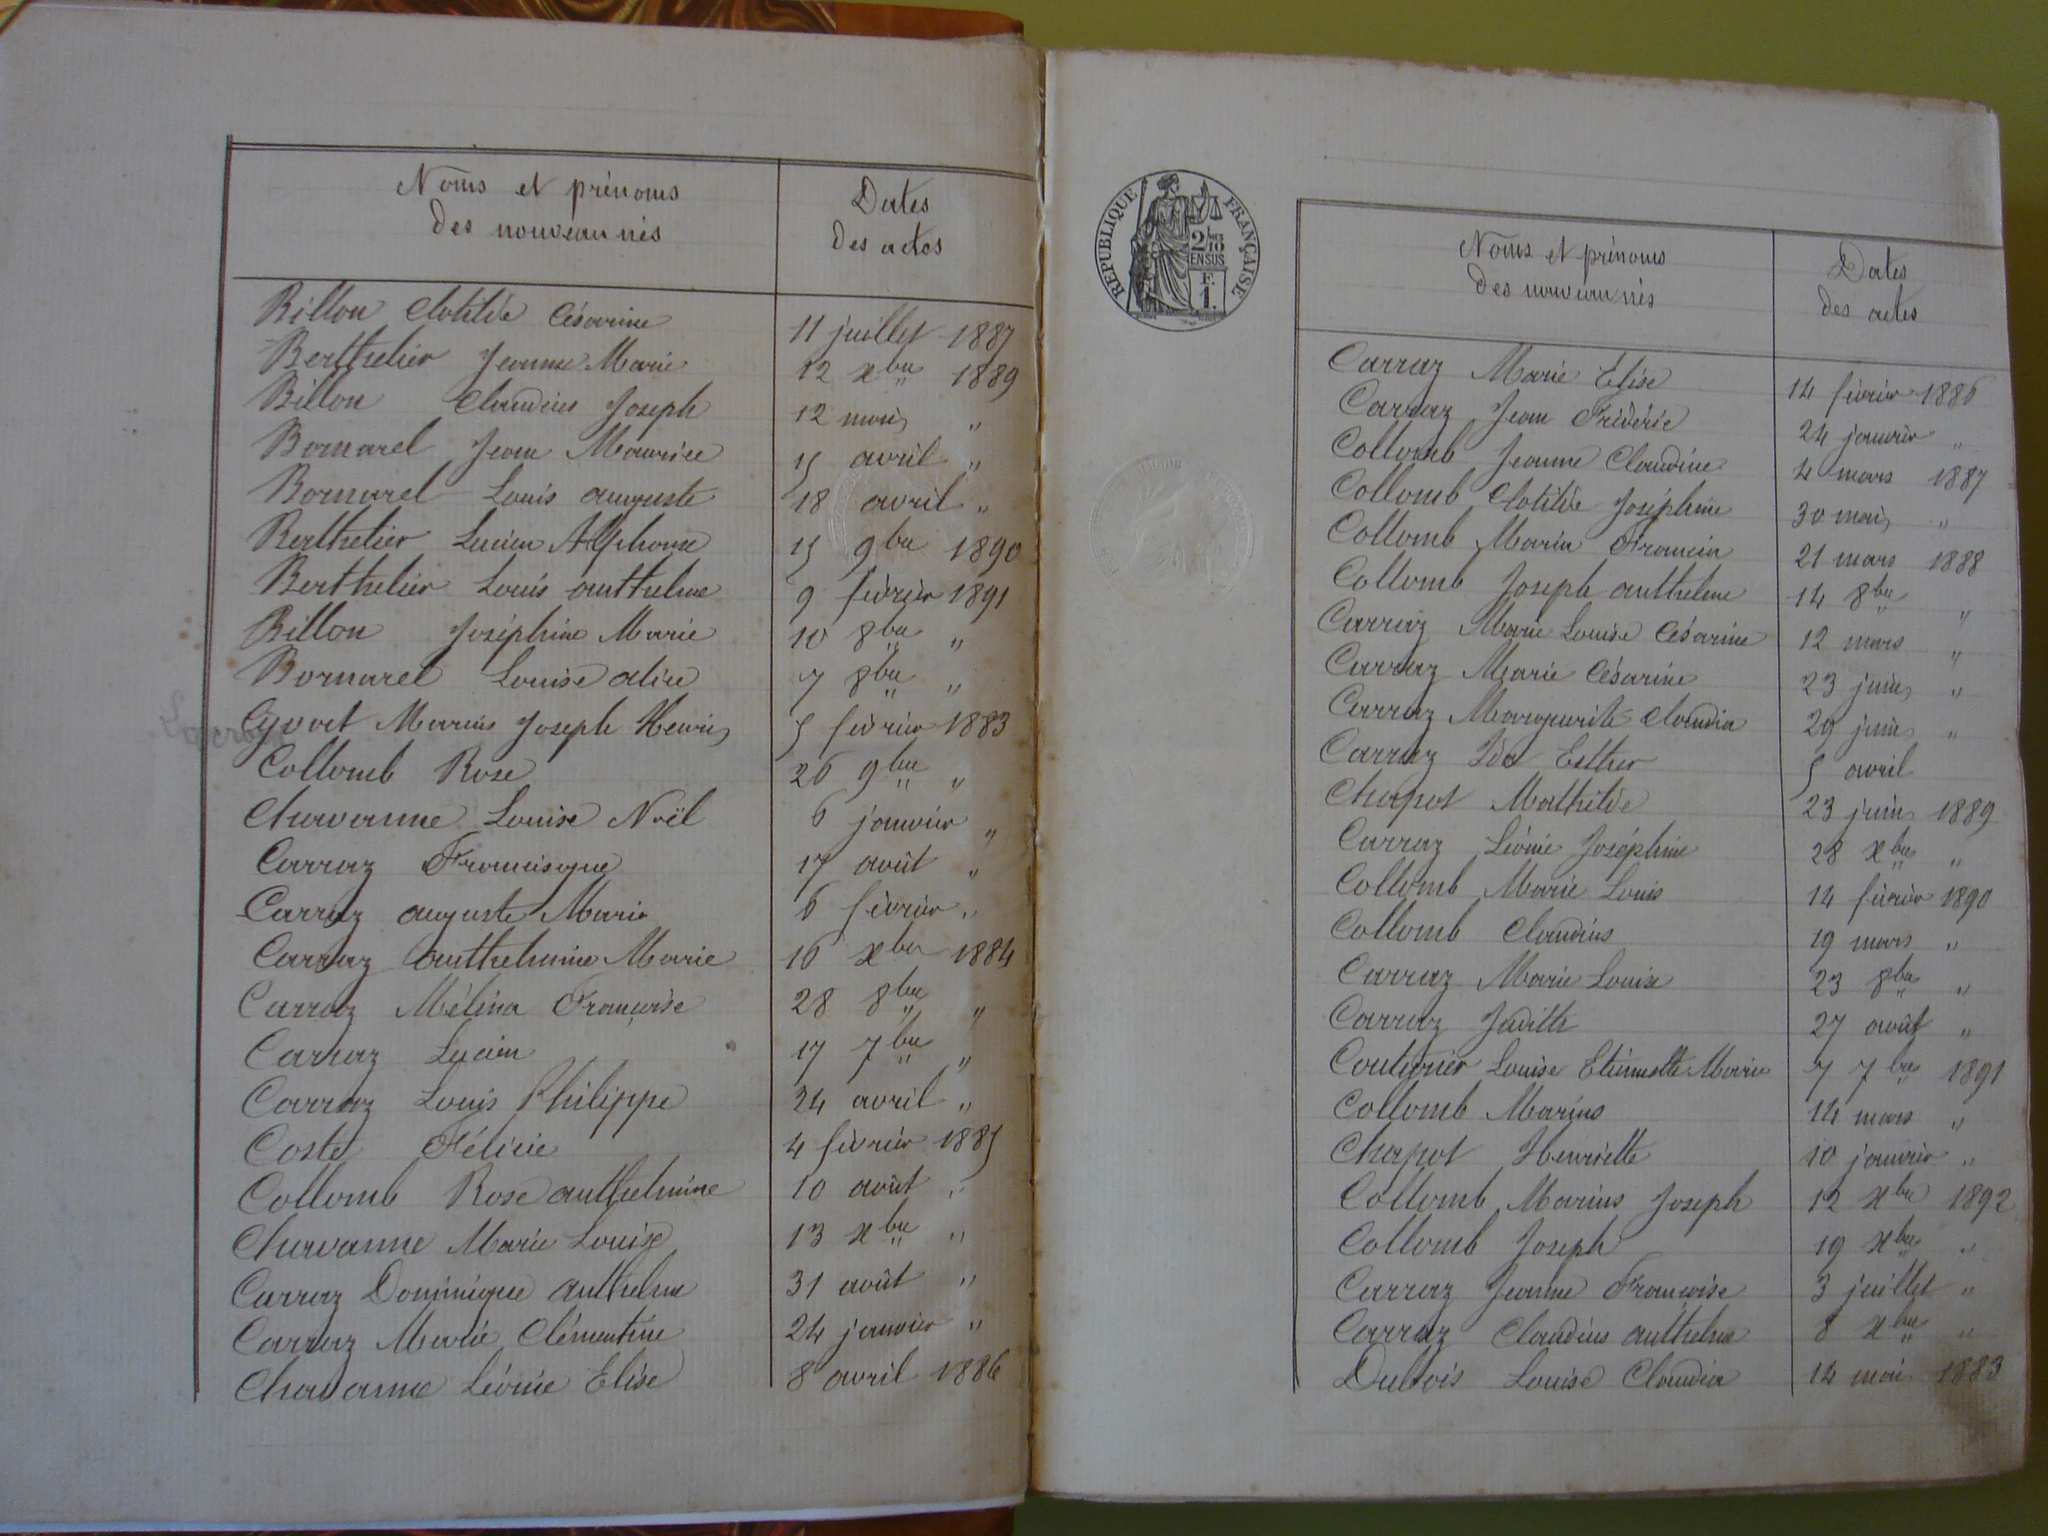 Noms et prénoms
des nouveau nés
Dates
des actes
Billon Clotilde Césarine 11 juillet 1887
Berthelier Jeanne Marie 12 xbre 1889
Billon Claudius Joseph 12 mai "
Bornarel Jean Maurice 5 avril "
Bornarel Louis auguste 18 avril "
Berthelier Lucien Alphonse 5 9bre 1890
Berthelier Louis anthelme 9 février 1891
Billon Joséphine Marie 10 8bre "
Bornarel Louise alice 7 8bre "
Marius Joseph Henri 5 février 1883
Collomb Rose 26 9bre "
Charvanne Louise Noël 6 janvier "
Carraz Francisque 17 août "
Carraz auguste Marie 6 février "
Carraz anthelmine Marie 16 xbre 1884
Carraz Mélina Françoise 28 8bre "
Carraz Lucien 17 7bre "
Carraz Louis Philippe 24 avril "
Coste Félicie 4 février 1885
Collomb Rose anthelmine 10 août "
Charvanne Marie Louise 13 xbre "
Carraz Dominique anthelme 31 août "
Carraz Marie Clémentine 24 janvier "
Chavanne Léonie Elise 8 avril 1886
RÉPUBLIQUE FRANÇAISE
2/10
EN SUS
F.
1.
Noms et prénoms
des nouveau nés
Dates
des actes
Carraz Marie Élise 14 février 1886
Carraz Jean Frédéric 24 janvier "
Collomb Jeanne Claudine 4 mars 1887
Collomb Clotilde Joséphine 30 mai "
Collomb Maria Francia 21 mars 1888
Collomb Joseph anthelme 14 8bre "
Carraz Marie Louise Césarine 12 mars "
Carraz Marie Césarine 23 juin "
Carraz Marguerite Claudia 29 juin "
Carraz Ida Esther 5 avril
Chapot Mathilde 23 juin 1889
Carraz Léonie Joséphine 28 xbre "
Collomb Marie Louis 14 février 1890
Collomb Claudius 19 mars "
Carraz Marie Louise 23 8bre "
Carraz Judith 27 août "
Couturier Louise Etiennette Marie 7 7bre 1891
Collomb Marius 14 mars "
Chapot Henriette 10 janvier "
Collomb Marius Joseph 12 xbre 1892
Collomb Joseph 19 xbre "
Carraz Jeanne Françoise 3 juillet "
Carraz Claudius anthelme 8 xbre "
Dubois Louise Claudia 14 mai 1883